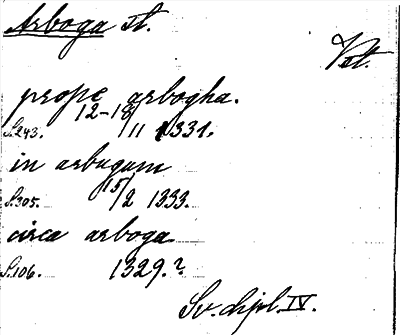 Arboga st.
Vst.
prope arbogha.
S. 243. 12-18/11 1331.
in arbugum
S. 305. 15/2 1333.
circa arboga
S. 106. 1329.?
Sv. dipl. IV.